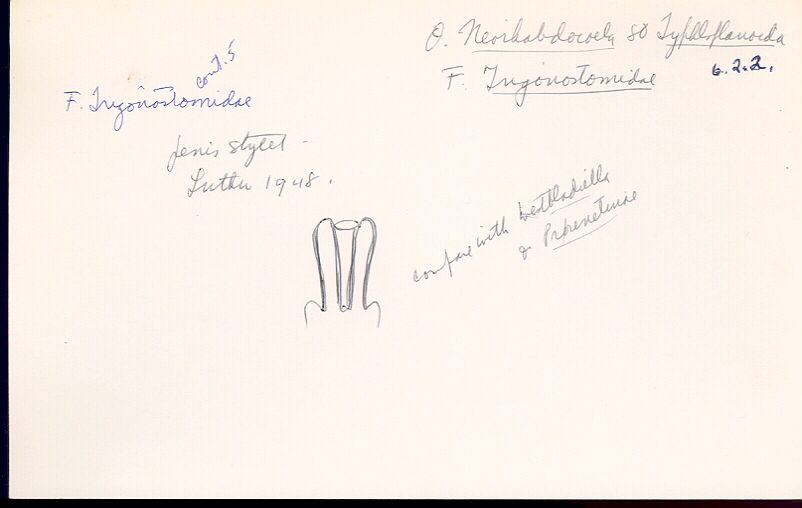 O. Neorhabdocoela SO Typhloplanoida
F. Trigonostomidae 6.2.2.
cont. 5
F. Trigonostomidae
penis stylet -
Luther 1948.
compare with Westbladiella
& Proxenetinae